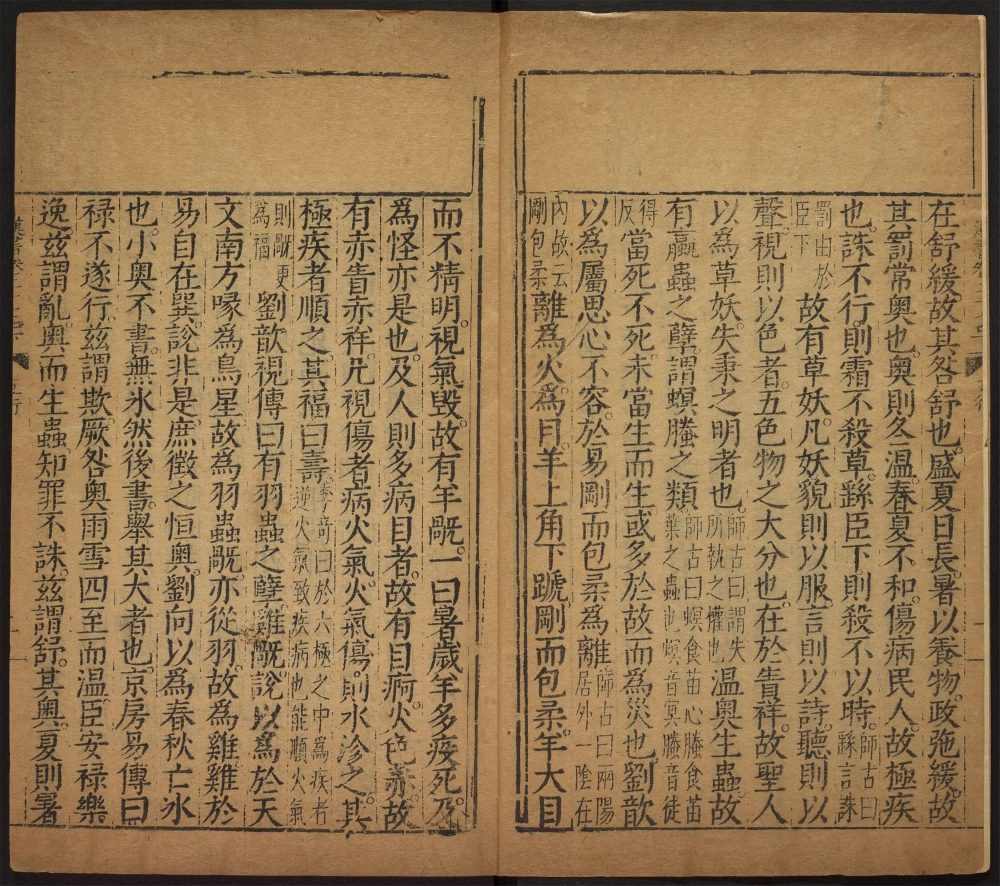 在舒緩故其咎舒也盛夏日長暑以養物政弛緩故
其罰常奥也奥則冬溫春夏不和傷病民人故極疾
也誅不行則霜不殺草繇臣下則殺不以時師古曰繇言誅
罰由於臣下故有草妖凡妖貌則以服言則以詩聽則以
聲視則以色者五色物之大分也在於眚祥故聖人
以為草妖失秉之明者也師古曰謂失所執之權也溫奥生蟲故
有蠃蟲之孽謂螟螣之類師古曰螟食苗心螣食苗葉之蟲也螟音冥螣音徒
得反當死不死未當生而生或多於故而為災也劉歆
以為屬思心不容於易剛而包柔為離師古曰兩陽居外一隂在
內故云剛包柔離為火為目羊上角下蹏剛而包柔羊大目
而不精明視氣毀故有羊旤一曰暑歲羊多疫死及
為怪亦是也及人則多病目者故有目痾火色赤故
有赤眚赤祥凡視傷者病火氣火氣傷則水沴之其
極疾者順之其福曰壽李竒曰於六極之中為疾者逆火氣致疾病也能順火氣
則旤更為福劉歆視傳曰有羽蟲之孽雞旤說以為於天
文南方喙為鳥星故為羽蟲旤亦從羽故為雞雞於
易自在巽說非是庶徵之恒奥劉向以為春秋亡冰
也小奥不書無氷然後書舉其大者也京房易傳曰
禄不遂行茲謂欺厥咎奥雨雪四至而溫臣安禄樂
逸茲謂亂奥而生蟲知罪不誅茲謂舒其奥夏則暑